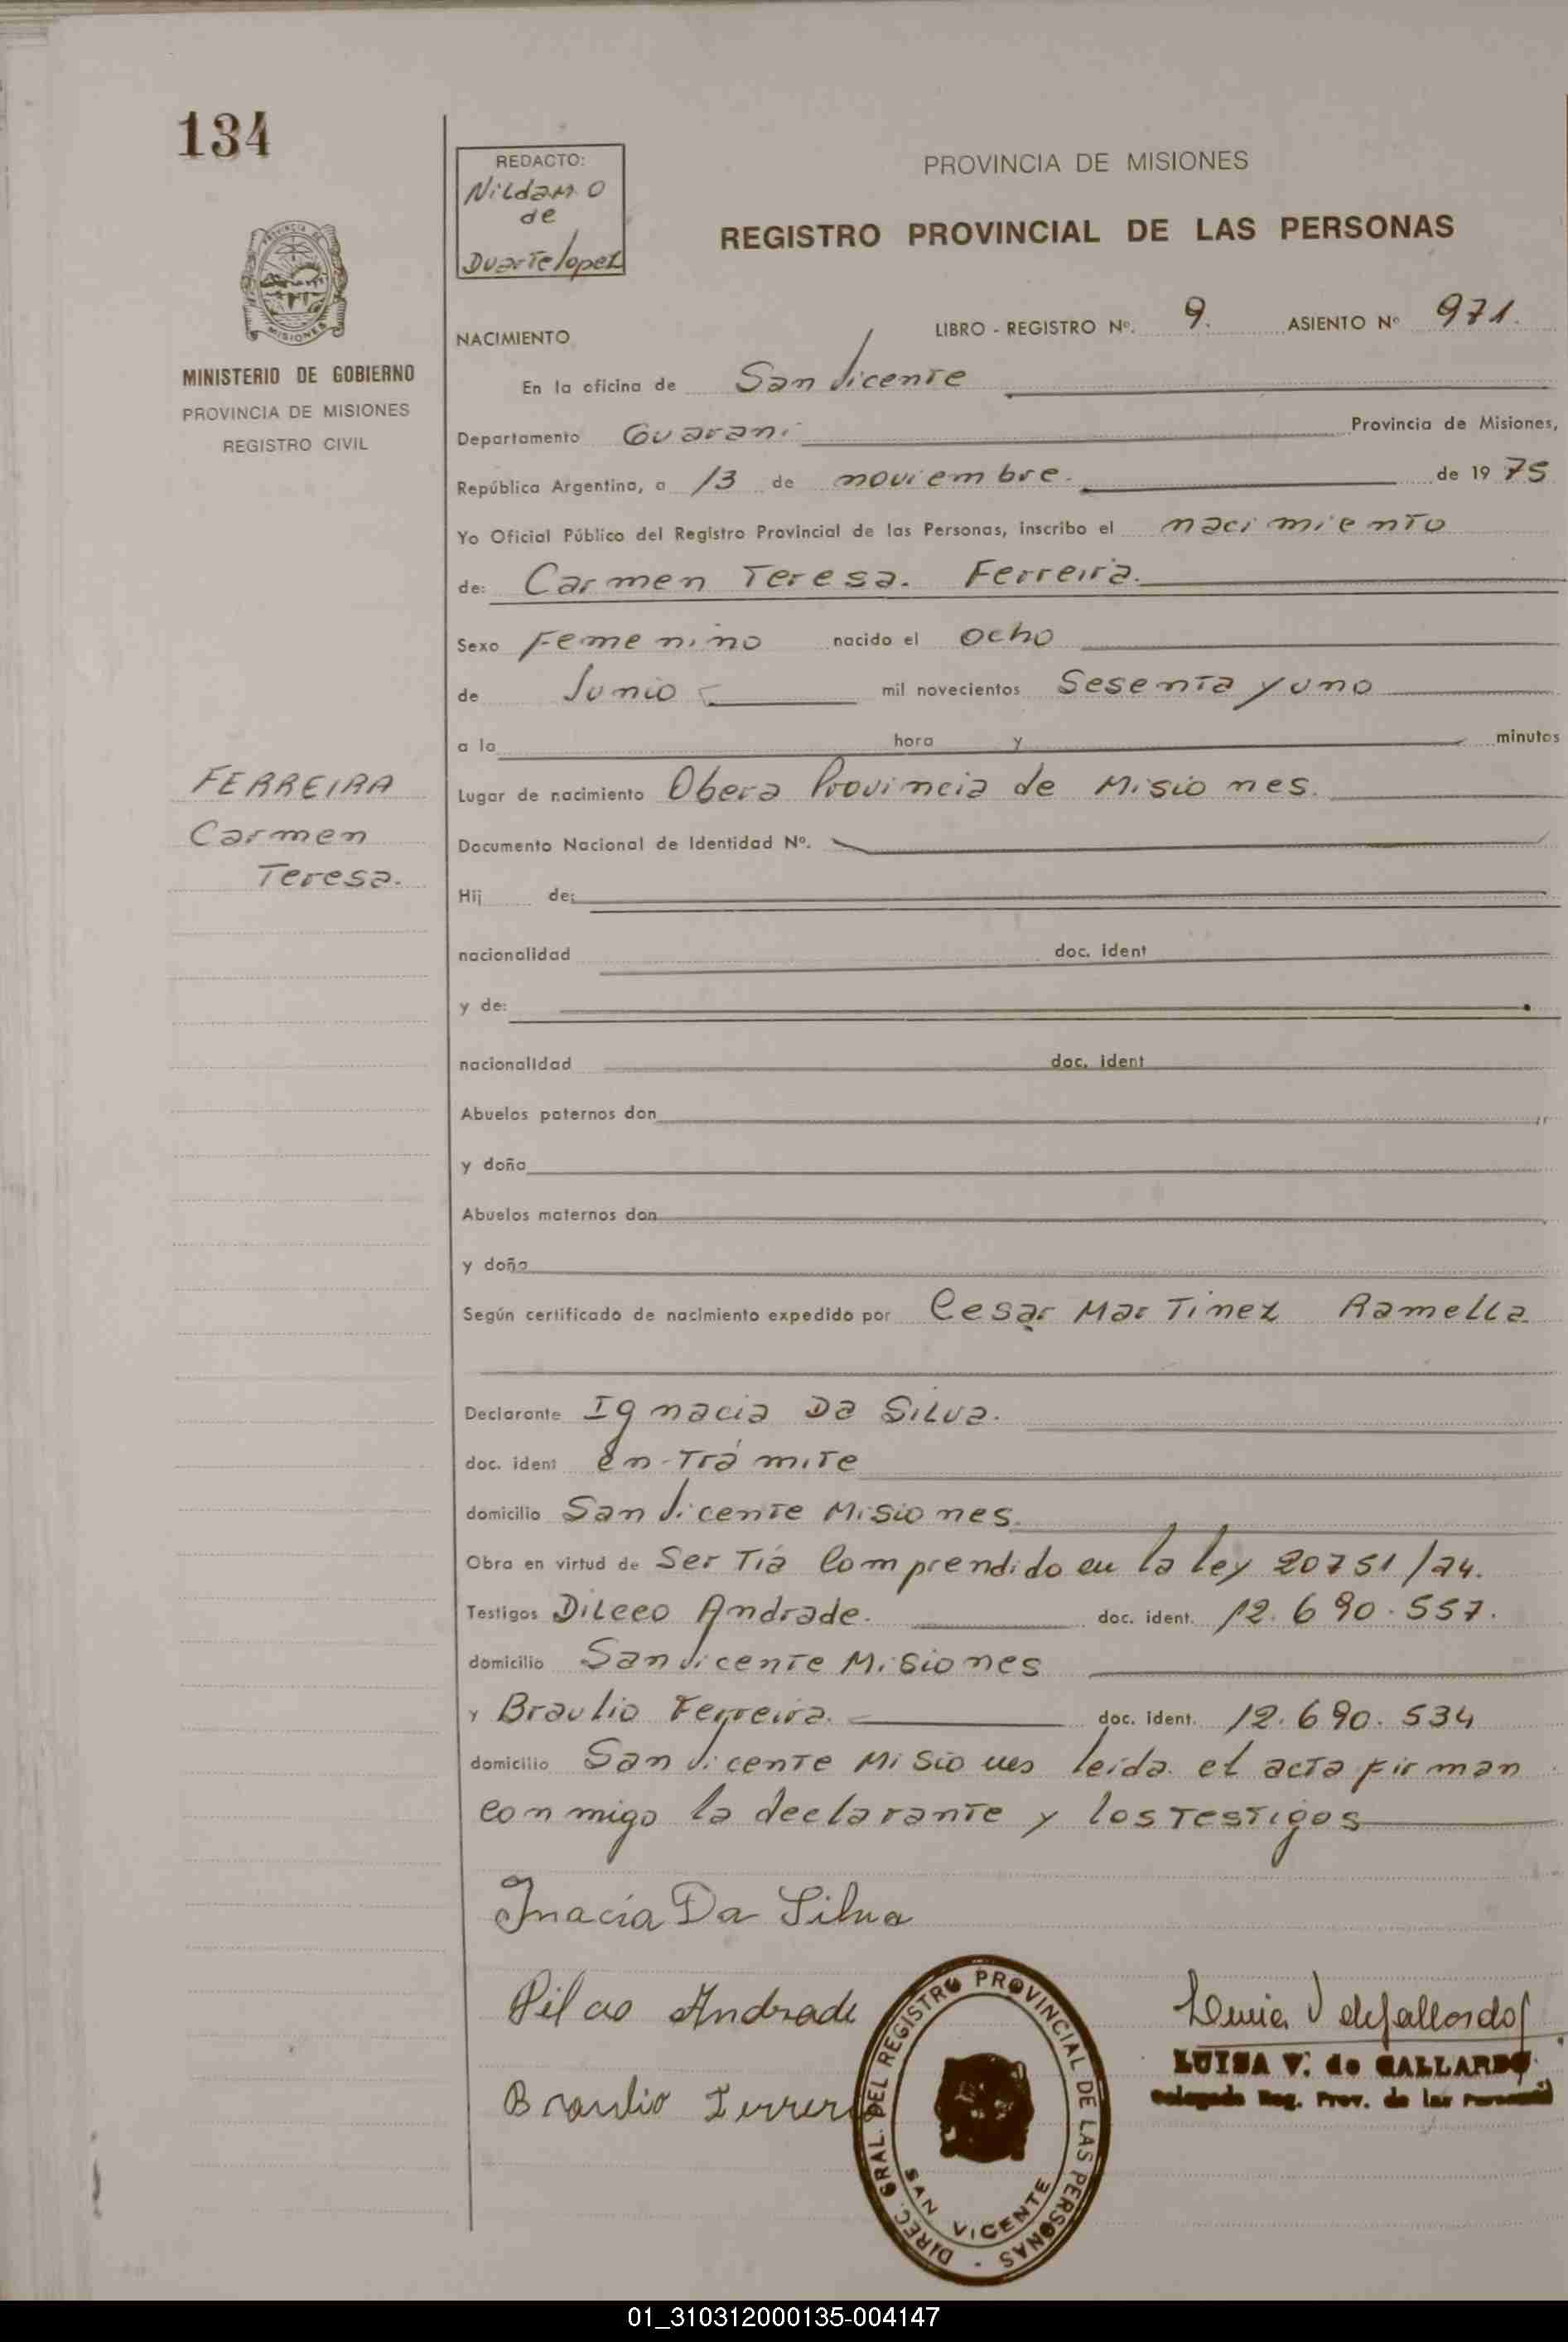 134
REDACTO:
Nildam O
de
Duarte lopez
PROVINCIA DE MISIONES
REGISTRO PROVINCIAL DE LAS PERSONAS
MISIONES
MINISTERIO DE GOBIERNO
PROVINCIA DE MISIONES
REGISTRO CIVIL
NACIMIENTO LIBRO - REGISTRO Nº. 9. ASIENTO Nº 971.
En la oficina de San Vicente
Departamento Guarani Provincia de Misiones,
República Argentina, a 13 de noviembre. de 1975
Yo Oficial Público del Registro Provincial de las Personas, inscribo el nacimiento
de: Carmen Teresa. Ferreira.
Sexo Femenino nacido el ocho
de Junio mil novecientos Sesenta y uno
a la hora y minutos
FERREIRA
Carmen
Teresa.
Lugar de nacimiento Obera Provincia de Misiones.
Documento Nacional de Identidad Nº.
Hij de:
nacionalidad doc. ident
y de:
nacionalidad doc. ident
Abuelos paternos don
y doña
Abuelos maternos don
y doña
Según certificado de nacimiento expedido por Cesar Martinez Ramella
Declarante Ignacia Da Silva.
doc. ident en-trámite
domicilio San Vicente Misiones.
Obra en virtud de Ser Tía Comprendido en la ley 20751/74.
Testigos Dileeo Andrade. doc. ident. 12.690.557.
domicilio San Vicente Misiones
y Braulio Ferreira. doc. ident. 12.690.534
domicilio San Vicente Misiones leida el acta firman
conmigo la declarante y los testigos
Inacia Da Silva
Andrade
Braulio
DIREC. GRAL. DEL REGISTRO PROVINCIAL DE LAS PERSONAS -
SAN VICENTE
LUISA V. de GALLARDO
Delegada Reg. Prov. de las Personas
01_310312000135-004147